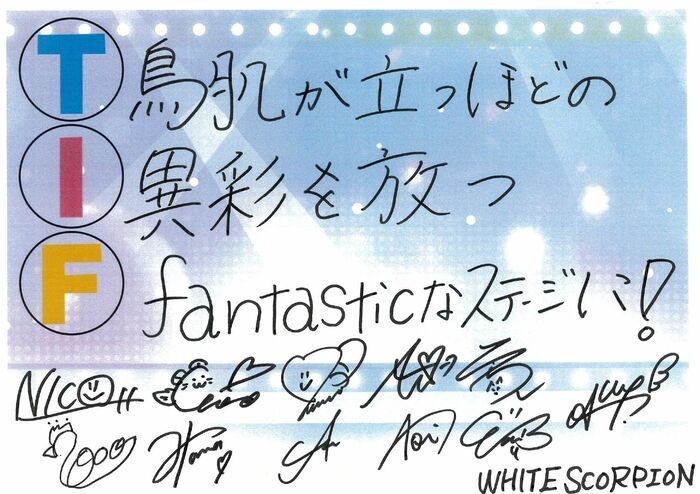 T 鳥肌が立つほどの
I 異彩を放つ
F fantasticなステージに!
NICO
Hana
Aoi
WHITE SCORPION